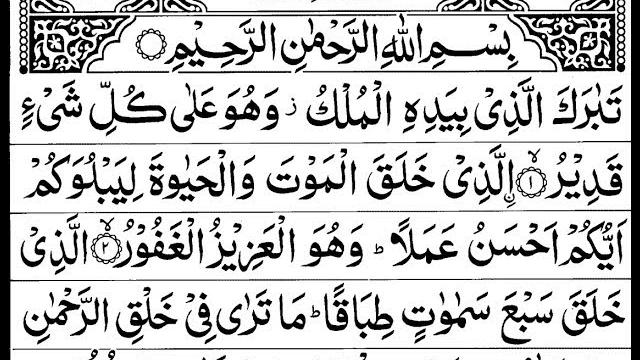 بِسْمِ اللهِ الرَّحْمٰنِ الرَّحِيْمِ
تَبٰرَكَ الَّذِىْ بِيَدِهِ الْمُلْكُ ز وَهُوَ عَلٰى كُلِّ شَىْءٍ
قَدِيْرُ ۙ﴿۱﴾ ۨالَّذِىْ خَلَقَ الْمَوْتَ وَالْحَيٰوةَ لِيَبْلُوَكُمْ
اَيُّكُمْ اَحْسَنُ عَمَلًا ؕ وَهُوَ الْعَزِيْزُ الْغَفُوْرُ ۙ﴿۲﴾ الَّذِىْ
خَلَقَ سَبْعَ سَمٰوٰتٍ طِبَاقًا ؕ مَا تَرٰى فِىْ خَلْقِ الرَّحْمٰنِ